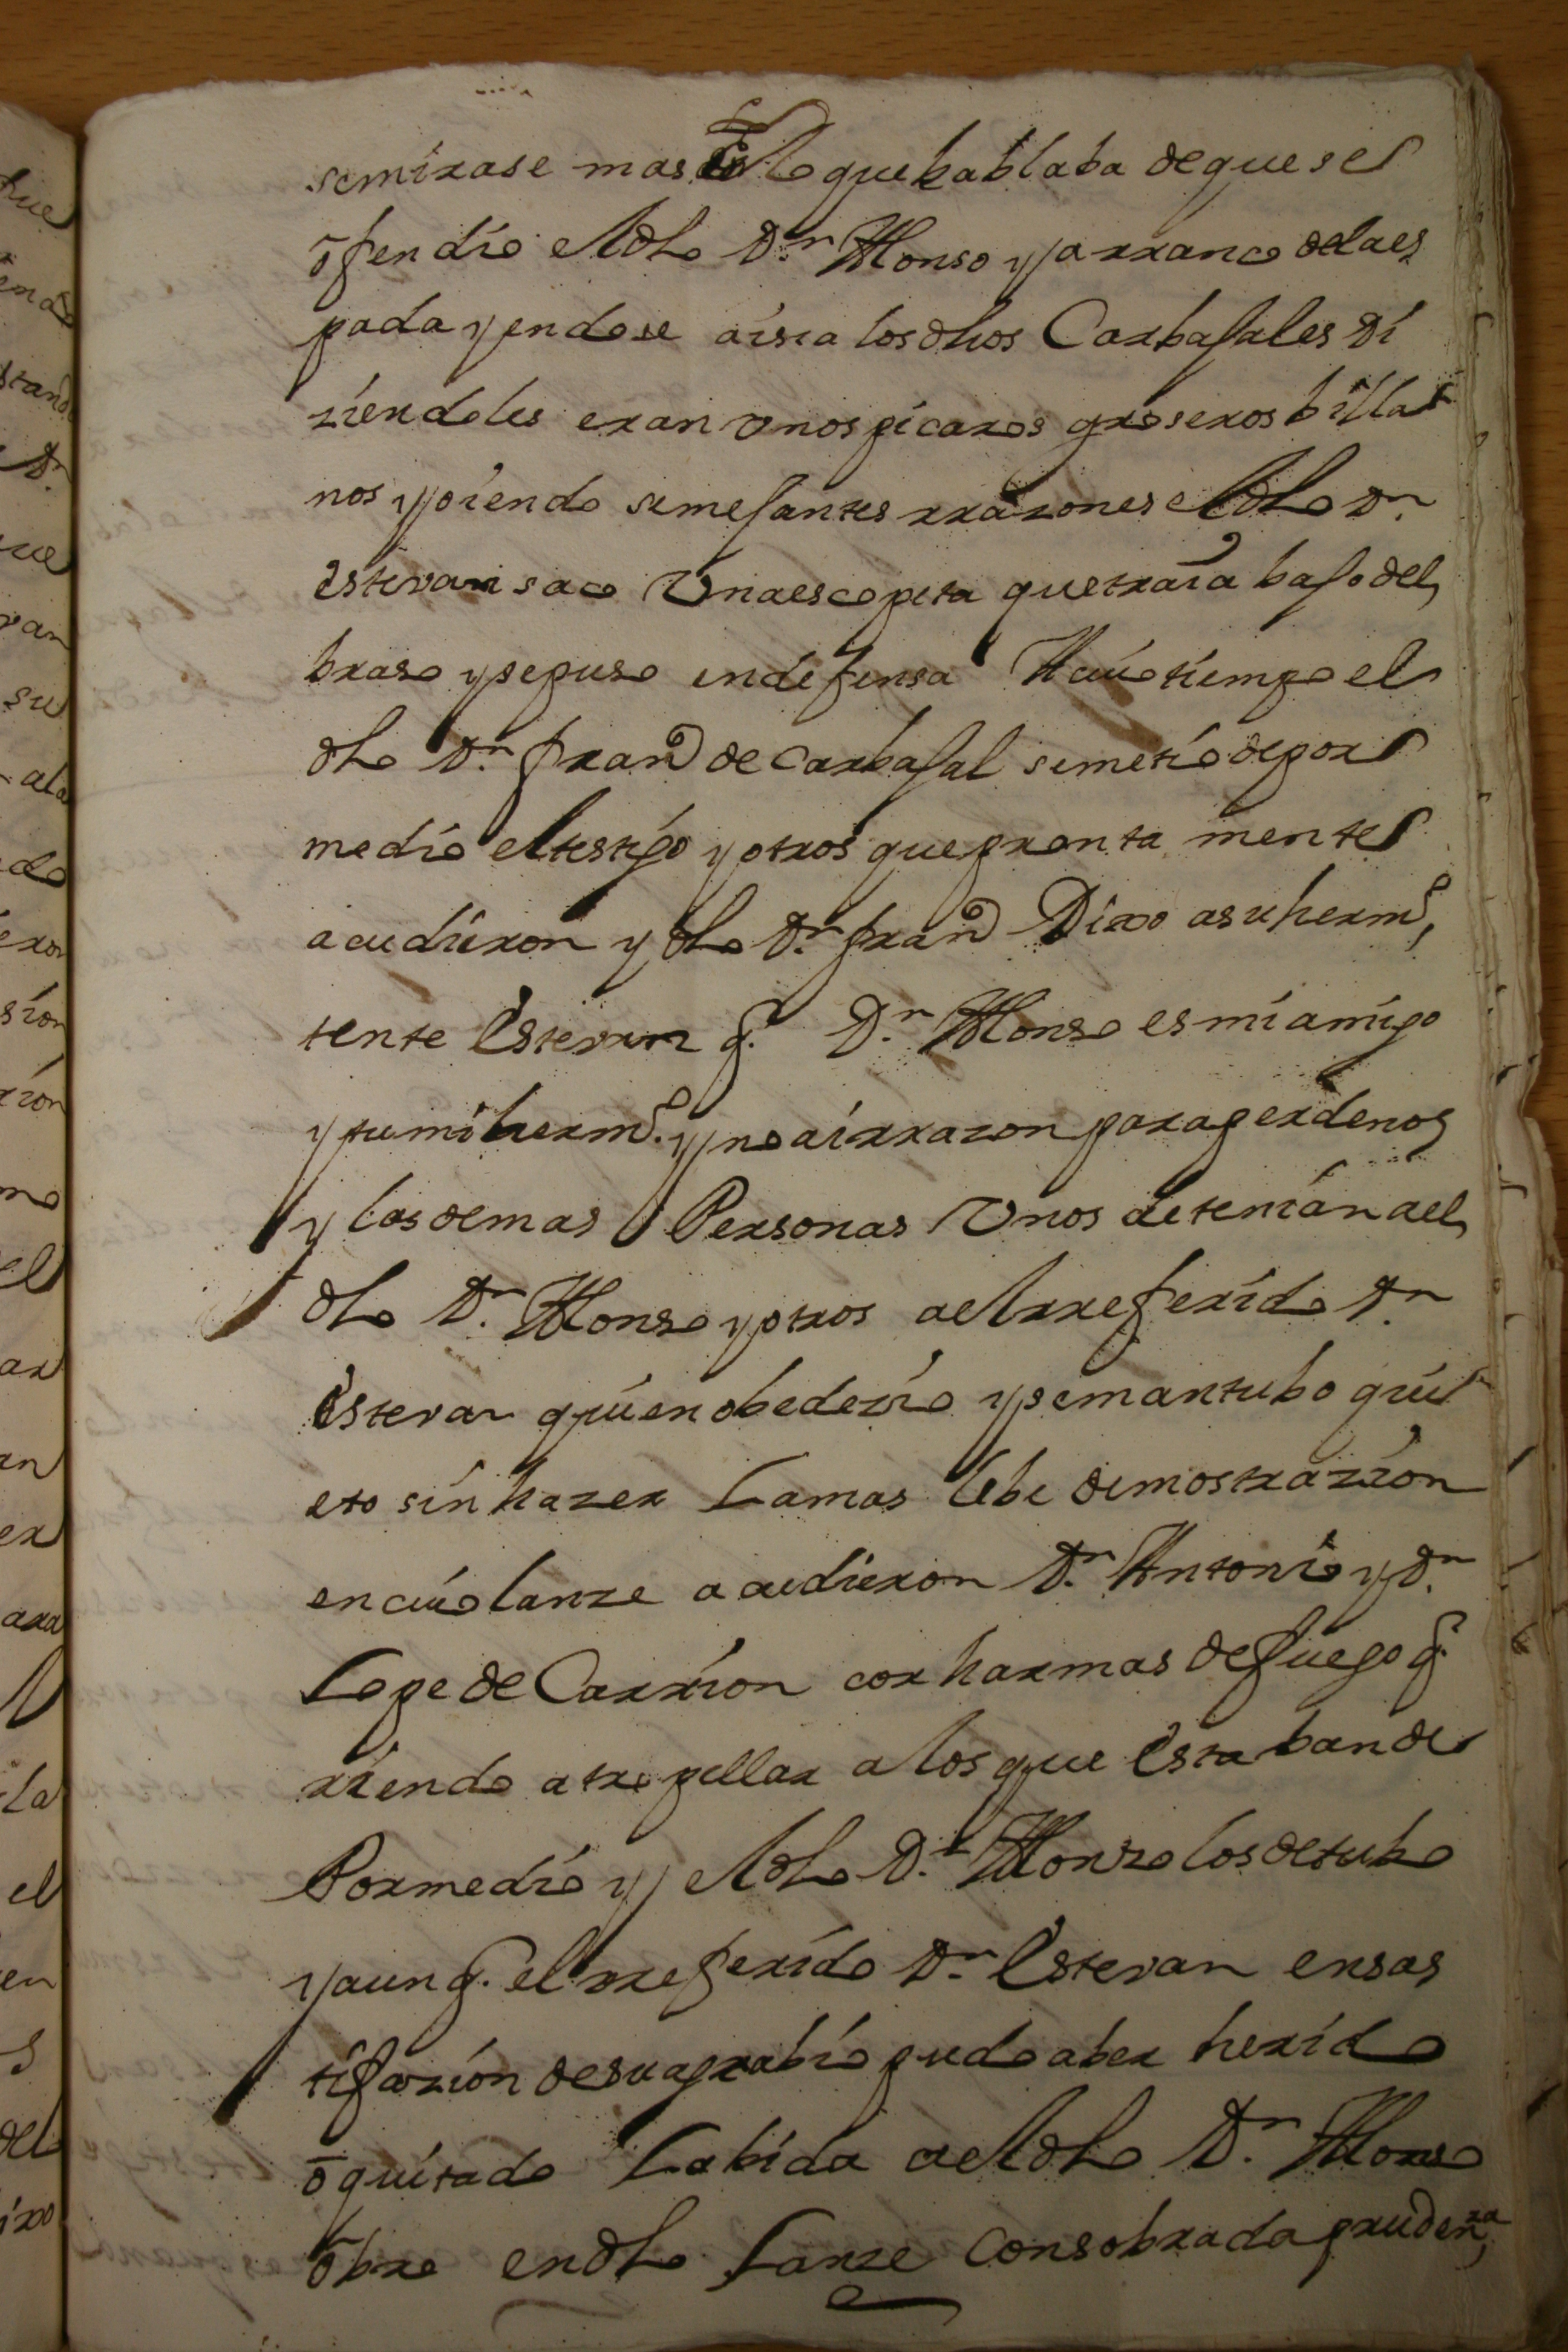 semirase mas En lo que hablaba de que se
ofendio el dho Dn Alonso y arranco de la es
pada yendose aisia los dhos Carbajales di
ziendoles eran vnos picaros groseros billa
nos y oiendo semejantes rrazones el dho Dn
estevan saco Vna escopeta que traia bajo del
braso y se puso en defensa A cuio tiempo el
dho Dn franco de Carbajal se metio de por
medio el testigo y otros que pronta mente
acudieron y dho Dn franco Dixo a su hermo
tente Estevan q. Dn Alonso es mi amigo
y tu mi hermo. y no ai rrazon para perdenos
y las demas Personas Vnos detenian a el
dho Dn Alonso y otros a el rreferido Dn
Estevan quien obedezio y se mantubo qui
eto sin hazer La mas lebe demostrazion
en cuio lanze acudieron Dn Antonio y Dn
Lope de Carrion con harmas de fuego q.
riendo atropellar a los que Estaban de
Por medio y el dho Dn Alonso los detubo
y aun q. el rreferido Dn Estevan en sas
tifazion de su agrabio pudo aber herido
o quitado La bida a el dho Dn Alonso
obro en dho Lanze con sobrada prudenza